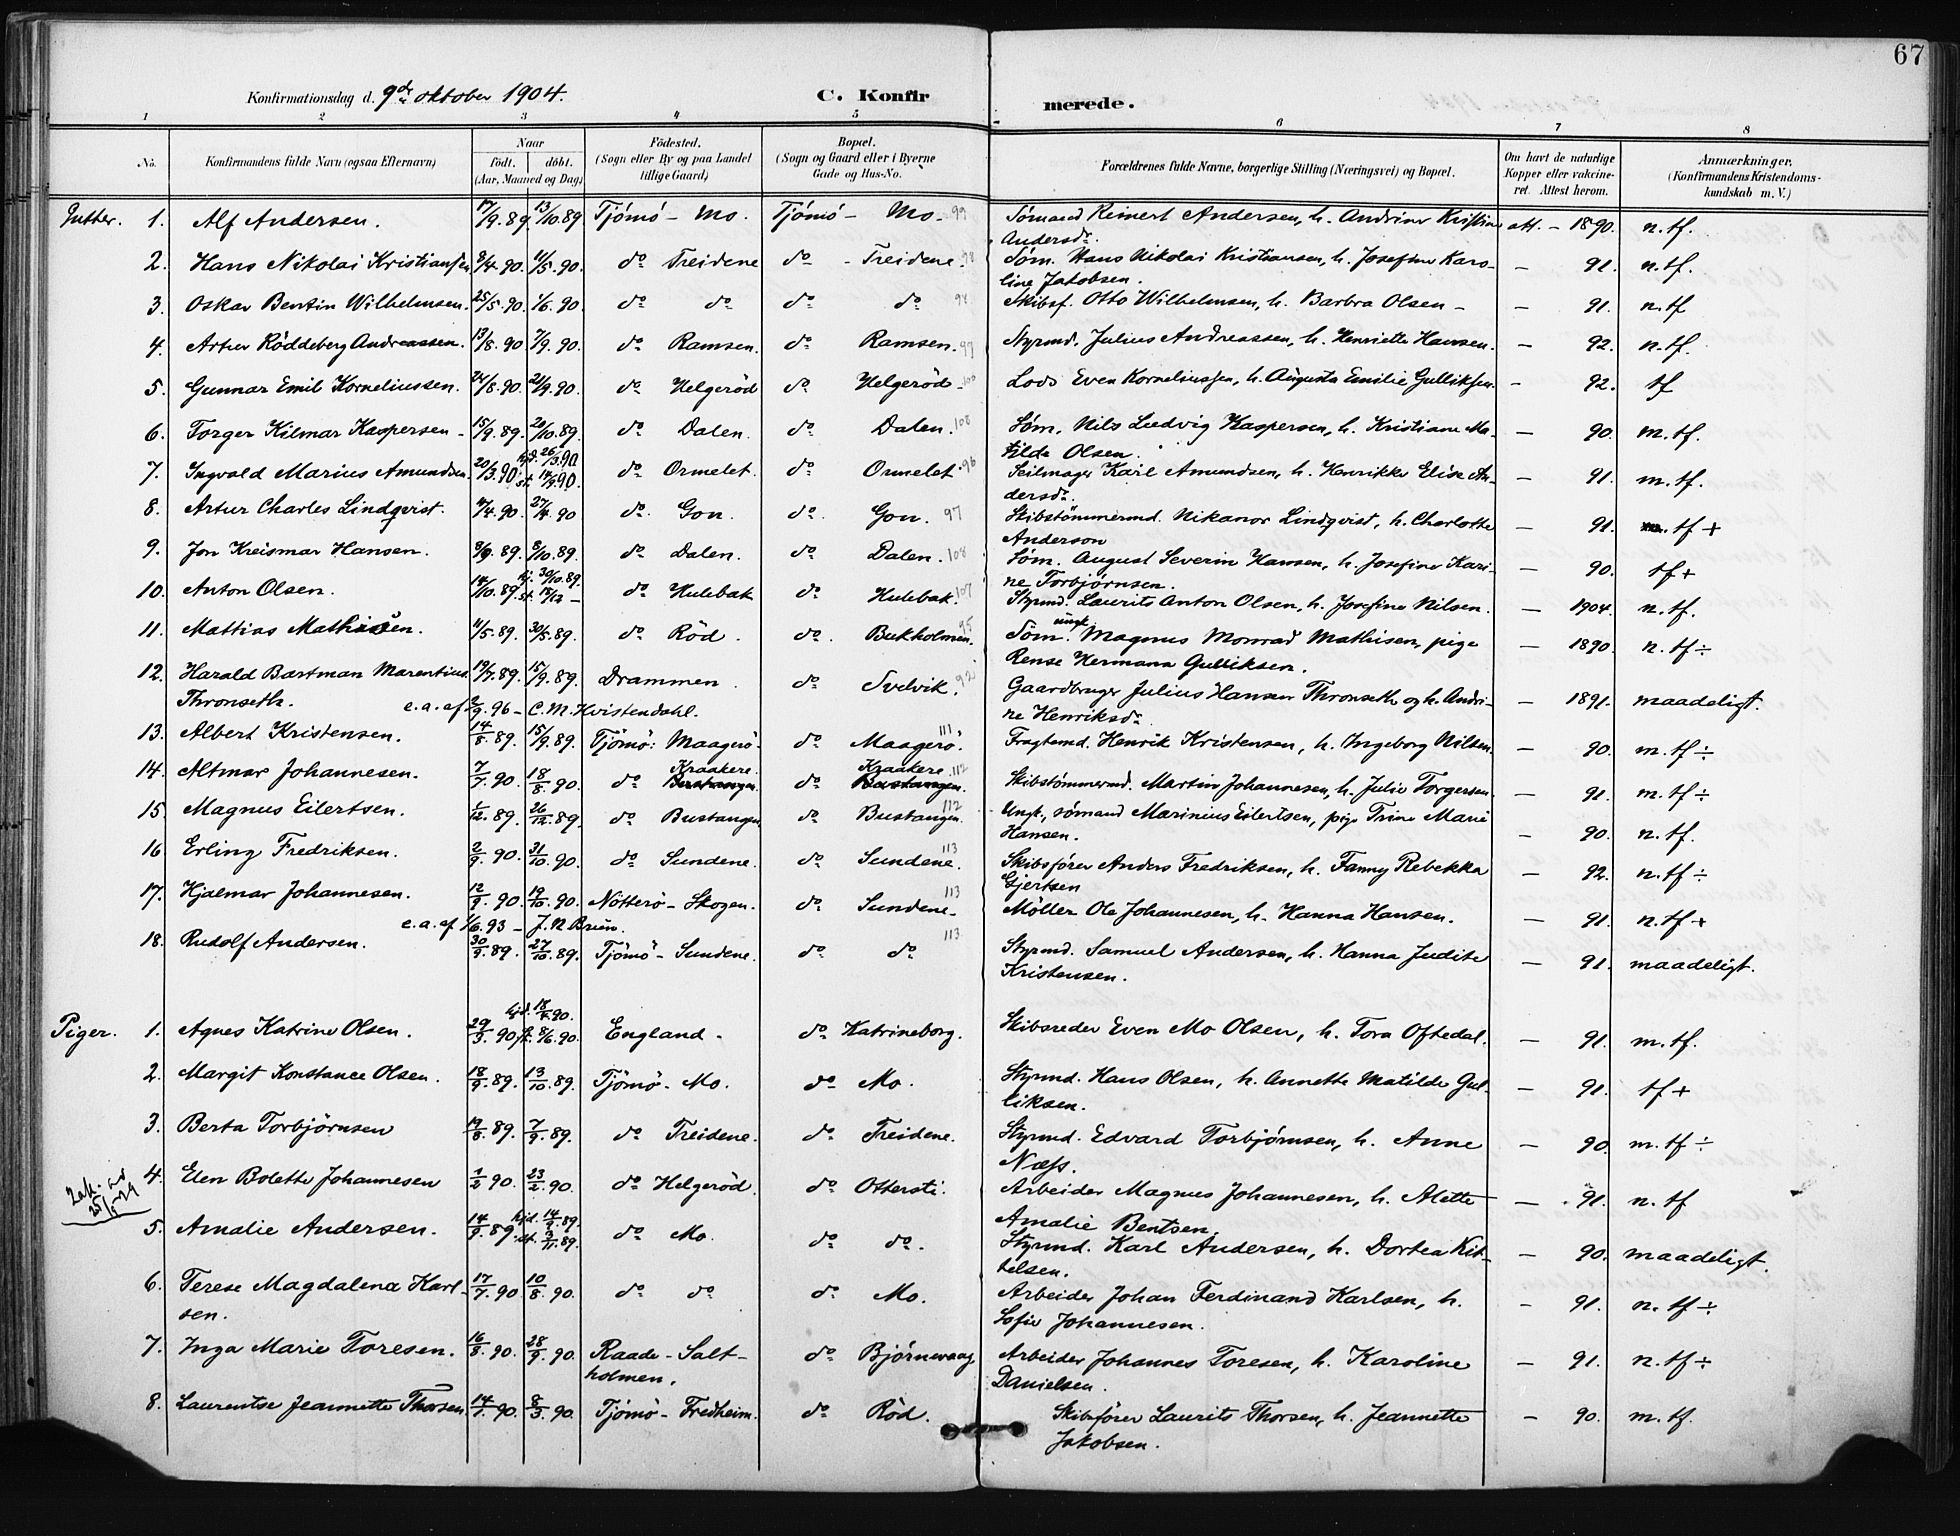 67
Konfirmationsdag d. 9de oktober 1904.
C. Konfirmerede.
1 2 3 4 5 6 7 8
No. Konfirmandens fulde Navn (ogsaa Efternavn) Naar født. døbt. (Aar, Maaned og Dag) Födested. (Sogn eller By og paa Landet tillige Gaard) Bopæl. (Sogn og Gaard eller i Byerne Gade og Hus-No. Forældrenes fulde Navne, borgerlige Stilling (Næringsvei) og Bopæl. Om havt de naturlige Kopper eller vakcineret. Attest herom. Anmærkninger. (Konfirmandens Kristendomskundskab m. V.)
Gutter. 1. Alf Andersen. 17/9.89 13/10.89 Tjömö - Mo. Tjömö - Mo. 99 Sömand Reinert Andersen, h. Andrine Kristine Andersdr. att. - 1890. n. tf.
2. Hans Nikolai Kristiansen 8/4.90. 11/5.90. do Treidene do - Treidene. 98 Söm. Hans Nikolai Kristiansen, h. Josefine Karoline Jakobsen. - 91. n. tf.
3. Oskar Bentin Wilhelmsen. 25/5.90. 1/6.90 do do do do 94 Skibsf. Otto Wilhelmsen, h. Barbra Olsen - - 91. n. tf
4. Artur Röddeberg Andreassen. 13/8.90 7/9.90. do Ramsen. do Ramsen. 99 Styrmd. Julius Andreassen, h. Henriette Hansen. - 92. n. tf.
5. Gunnar Emil Korneliussen. 24/8.90. 21/9.90. do Helgeröd do Helgeröd. 100 Lods Even Korneliussen, h. Augusta Emilie Gulliksen. - 92. tf
6. Torger Hilmar Kaspersen - 15/9.89. 20/10.89. do Dalen. do Dalen. 108 Söm. Nils Ludvig Kaspersen, h. Kristiane Matilde Olsen. - 90. m. tf.
7. Ingvald Marius Amundsen 20/3.90 hjd. 26/3.90 st. 14/9.90. do Ormelet. do Ormelet. 96 Seilmager Karl Amundsen, h. Henrikke Elise Andersdr. - 91. m. tf.
8. Artur Charles Lindqvist. 4/4.90. 27/4.90 do. Gon. do. Gon. 97 Skibstömmermd. Nikanor Lindqvist, h. Charlotte Anderson - 91. tf +
9. Jon Kreismar Hansen. 8/9.89. 8/10.89. do Dalen. do Dalen. 108 Söm. August Severin Hansen, h. Josefine Karine Torbjörnsen. - 90. tf +
10. Anton Olsen. 14/10.89. hj. 30/10.89. st. 18/12 - do Hulebak do Hulebak. 107 Styrmd. Laurits Anton Olsen, h. Josefine Nilsen. - 1904. n. tf.
11. Mattias Mathisen. 11/5.89. 30/5.89. do Röd. do. Bukholmen. 95 Söm. ungk. Magnus Monrad Mathisen, pige Rense Hermana Gulliksen. - 1890. n. tf ÷
12. Harald Bartman Marentius Thronseth. 19/7.89. 15/9.89. Drammen. do Svelvik. 92 Gaardbruger Julius Hansen Thronseth og h. Andrine Henriksdr. - 1891. maadeligt.
e.a. af 2/9.96 - C.M. Hvistendahl.
13. Albert Kristensen. 14/8.89. 15/9.89. Tjömö: Maagerö. do Maagerö. 111 Fragtemd. Henrik Kristensen, h. Ingeborg Nilsen. - 90. m. tf ÷
14. Altmar Johannesen. 7/7.90. 18/8.90. do Kraakere. Bustangen. do Kraakere. 112 Bustangen. Skibstømmermd. Martin Johannesen, h. Julie Torgersen. - 91. m. tf ÷
15. Magnus Eilertsen. 1/12.89. 26/12.89. do Bustangen. do Bustangen. 112 Ungk., sömand Marinius Eilertsen, pige Trine Marie Hansen. - 90. n. tf.
16. Erling Fredriksen. 2/9.90. 31/10.90. do Sundene. do Sundene. 113 Skibsförer Anders Fredriksen, h. Fanny Rebekka Gjertsen - 92. n. tf ÷
17. Hjalmar Johannesen. 12/9.90. 19/10.90. Nötterö - Skogen. do Sundene. 113 Möller Ole Johannesen, h. Hanna Hansen. - 91. n. tf +
e.a. af 1/6.93 - J.N. Bruun.
18. Rudolf Andersen. 30/9.89. 27/10.89. Tjömö - Sundene. do do. 113 Styrmd. Samuel Andersen, h. Hanna Judite Kristensen. - 91. maadeligt.
Piger. 1. Agnes Katrine Olsen. 29/3.90 hjd. 18/4.90. 8/6.90. England - do Katrineborg. Skibsreder Even Mo Olsen, h. Tora Oftedal. - 91. m. tf.
2. Margit Konstance Olsen. 18/9.89. 13/10.89. Tjömö - Mo. do Mo. Styrmd. Hans Olsen, h. Annette Matilde Gulliksen. - 91. tf +
3. Berta Torbjörnsen 19/8.89. 7/9.89. do Treidene. do Treidene. Styrmd. Edvard Torbjörnsen, h. Anne Næss. - 90. m. tf ÷
4. Elen Bolette Johannesen 1/2.90. 23/2.90. do Helgeröd. do Ottersti. Arbeider Magnus Johannesen, h. Alette Amalie Bentsen. - 91. n. tf
5. Amalie Andersen. 14/9.89. hjd. 14/9.89. st. 3/11.89. do Mo. do do. Styrmd. Karl Andersen, h. Dortea Kittelsen. - 90. maadeligt.
6. Terese Magdalena Karlsen. 17/7.90. 10/8.90. do do do Mo. Arbeider Johan Ferdinand Karlsen, h. Sofie Johannesen. - 91. n. tf ÷
7. Inga Marie Toresen. 16/8.90. 28/9.90. Raade - Saltholmen. do Björnevaag Arbeider Johannes Toresen, h. Karoline Danielsen. - 91. n. tf ÷
8. Laurentse Jeannette Thorsen. 14/1.90. 8/3.90. Tjömö - Fredheim. do Röd. Skibsförer Laurits Thorsen, h. Jeannette Jakobsen. - 90. m. tf.